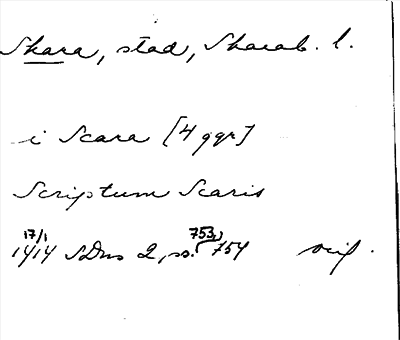 Skara, stad, Skarab. l.
i Scara [4 ggr]
Scriptum Scaris
17/1 1414 SDns 2, s. 753, 754 orig.